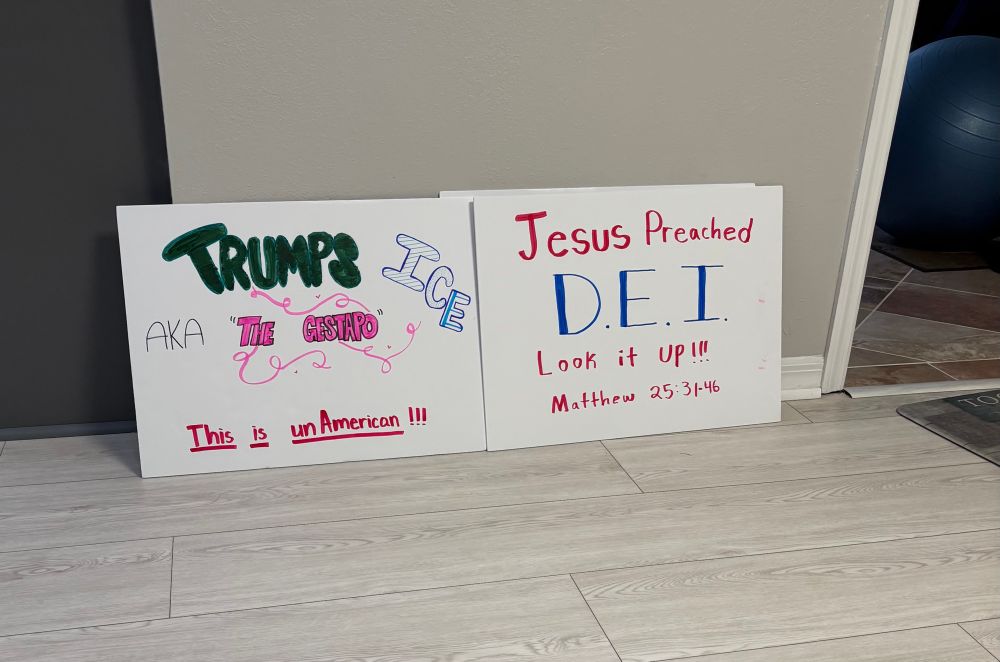 TRUMPS ICE
AKA "THE GESTAPO"
This is unAmerican!!!
Jesus Preached
D.E.I.
Look it up!!!
Matthew 25:31-46